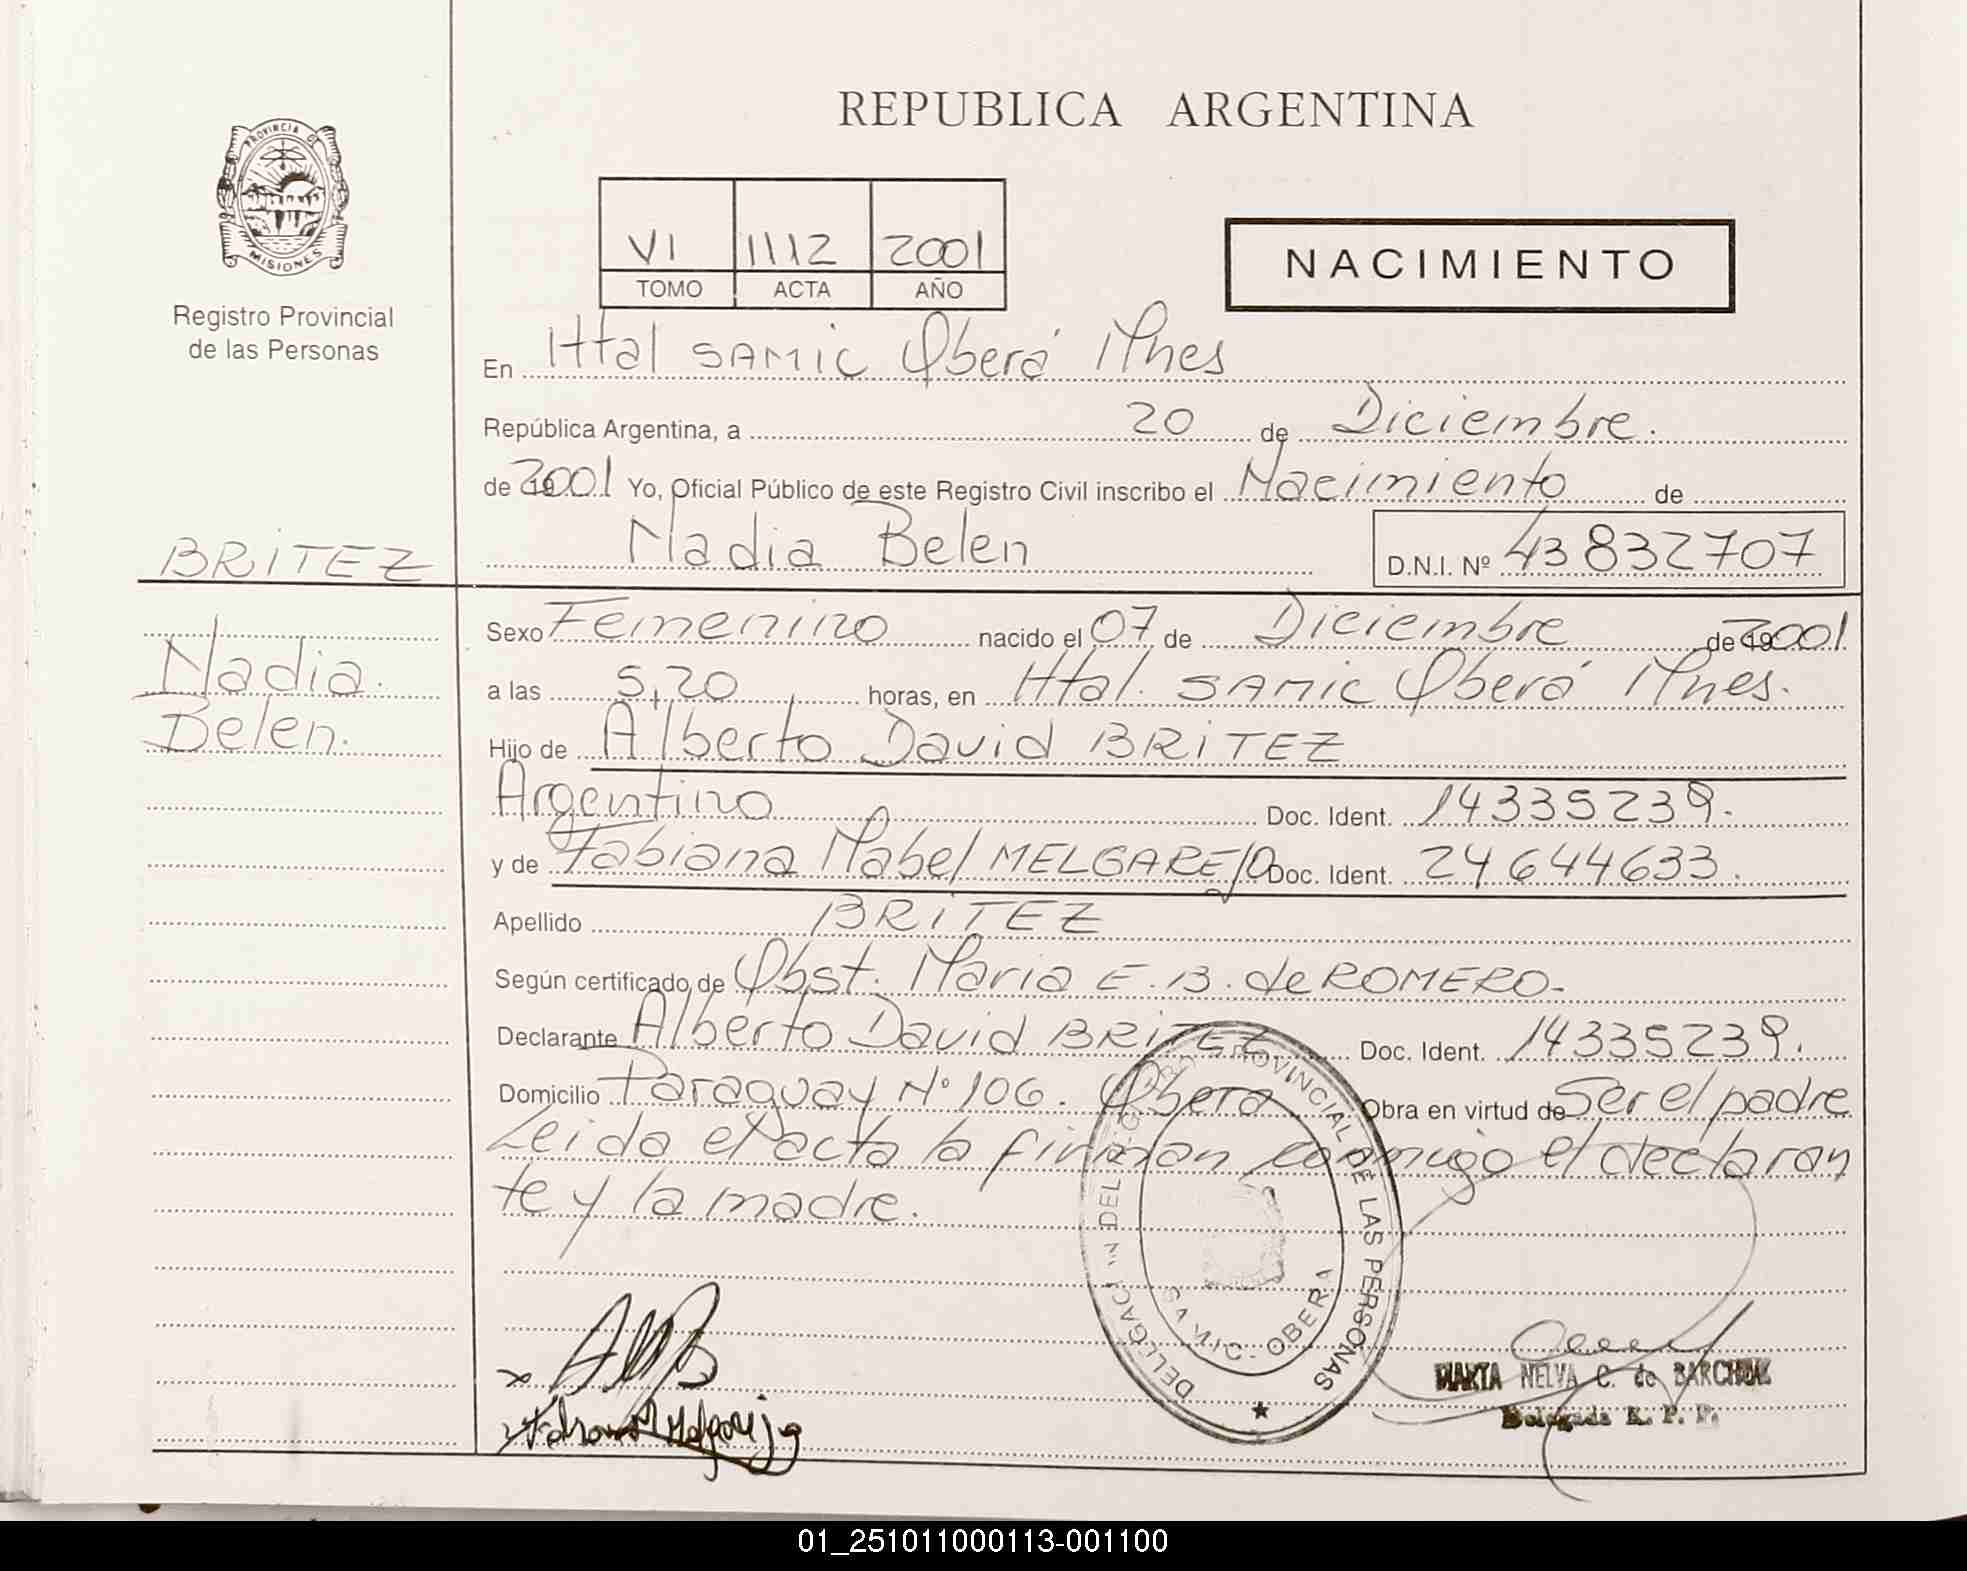 REPUBLICA ARGENTINA
PROVINCIA DE
MISIONES
Registro Provincial
de las Personas
VI 1112 2001
TOMO ACTA AÑO
NACIMIENTO
En Httal SAMIC Oberá Mnes
República Argentina, a 20 de Diciembre.
de 2001 Yo, Oficial Público de este Registro Civil inscribo el Nacimiento de
Nadia Belen D.N.I. Nº 43832707
BRITEZ
Nadia.
Belen.
Sexo Femenino nacido el 07 de Diciembre de 2001
a las 5,20 horas, en Httal. SAMIC Oberá Mnes.
Hijo de Alberto David BRITEZ
Argentino Doc. Ident. 14335239.
y de Fabiana Mabel MELGAREJO Doc. Ident. 24644633.
Apellido BRITEZ
Según certificado de Obst. Maria E. B. de ROMERO-
Declarante Alberto David BRITEZ Doc. Ident. 14335239.
Domicilio Paraguay Nº 106. Obera Obra en virtud de Ser el padre
Leido el acta la firman conmigo el declaran
te y la madre.
PROVINCIAL DE LAS PERSONAS
OBERA
MARTA NELVA C. de
Delegada R. P. P.
01_251011000113-001100